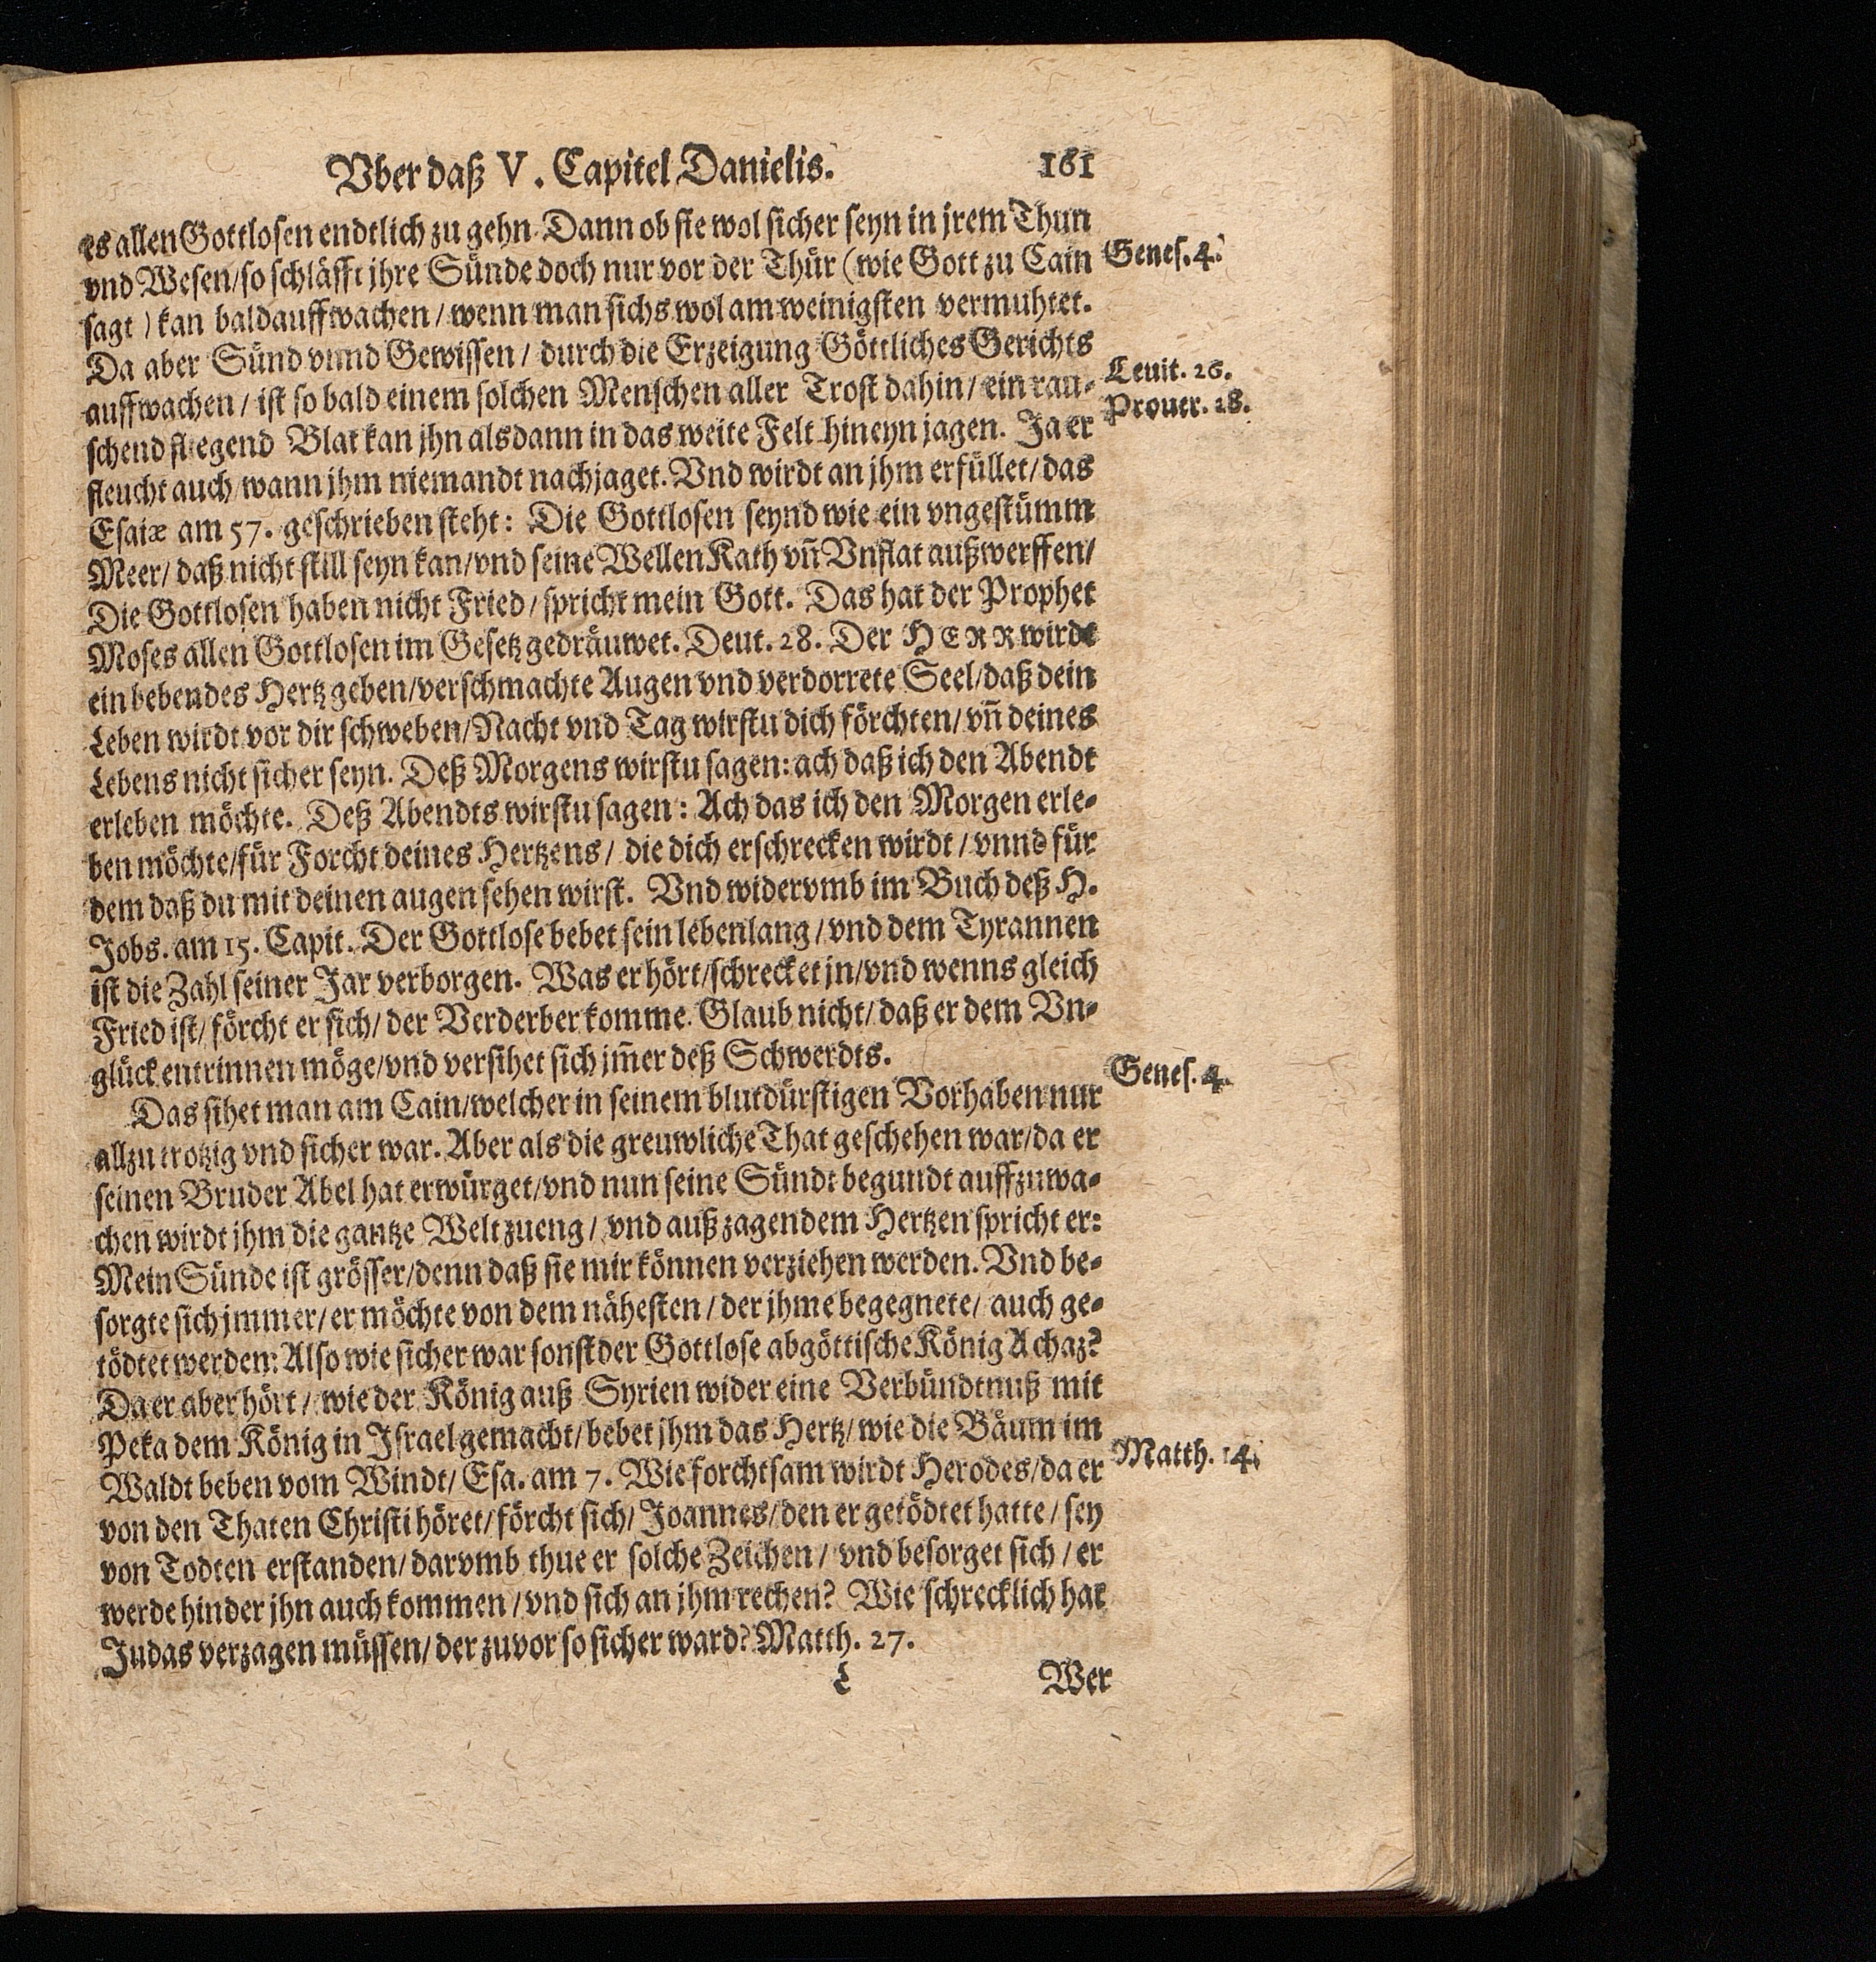 Vber daß V. Capitel Danielis. 161
es allen Gottlosen endtlich zu gehn. Dann ob sie wol sicher seyn in jrem Thun
vnd Wesen/so schläfft jhre Sünde doch nur vor der Thür (wie Gott zu Cain
Genes. 4.
sagt) kan bald auffwachen/wenn man sichs wol am weinigsten vermuhtet.
Da aber Sünd vnnd Gewissen/durch die Erzeigung Göttliches Gerichts
auffwachen/ist so bald einem solchen Menschen aller Trost dahin/ein rau-
Leuit. 26.
Prouer. 28.
schend fliegend Blat kan jhn alsdann in das weite Felt hineyn jagen. Ja er
fleucht auch/wann jhm niemandt nachjaget. Vnd wirdt an jhm erfüllet/das
Esaiæ am 57. geschrieben steht: Die Gottlosen seynd wie ein vngestümm
Meer/daß nicht still seyn kan/vnd seine Wellen Kath vñ Vnflat außwerffen/
Die Gottlosen haben nicht Fried/spricht mein Gott. Das hat der Prophet
Moses allen Gottlosen im Gesetz gedräuwet. Deut. 28. Der HERR wirdt
ein bebendes Hertz geben/verschmachte Augen vnd verdorrete Seel/daß dein
Leben wirdt vor dir schweben/Nacht vnd Tag wirstu dich förchten/vñ deines
Lebens nicht sicher seyn. Deß Morgens wirstu sagen: ach daß ich den Abendt
erleben möchte. Deß Abendts wirstu sagen: Ach das ich den Morgen erle-
ben möchte/für Forcht deines Hertzens/die dich erschrecken wirdt/vnnd für
dem daß du mit deinen augen sehen wirst. Vnd widervmb im Buch deß H.
Jobs. am 15. Capit. Der Gottlose bebet sein lebenlang/vnd dem Tyrannen
ist die Zahl seiner Jar verborgen. Was er hört/schrecket jn/vnd wenns gleich
Fried ist/förcht er sich/der Verderber komme. Glaub nicht/daß er dem Vn-
glück entrinnen möge/vnd versihet sich jm̃er deß Schwerdts.
Das sihet man am Cain/welcher in seinem blutdürstigen Vorhaben nur
Genes. 4.
allzu trotzig vnd sicher war. Aber als die greuwliche That geschehen war/da er
seinen Bruder Abel hat erwürget/vnd nun seine Sündt begundt auffzuwa-
chen wirdt jhm die gantze Welt zu eng/vnd auß zagendem Hertzen spricht er:
Mein Sünde ist grösser/denn daß sie mir können verziehen werden. Vnd be-
sorgte sich jmmer/er möchte von dem nähesten/der jhme begegnete/auch ge-
tödtet werden: Also wie sicher war sonst der Gottlose abgöttische König Achaz?
Da er aber hört/wie der König auß Syrien wider eine Verbündtnuß mit
Peka dem König in Israel gemacht/bebet jhm das Hertz/wie die Bäum im
Waldt beben vom Windt/Esa. am 7. Wie forchtsam wirdt Herodes/da er
Matth. 14.
von den Thaten Christi höret/förcht sich/Joannes/den er getödtet hatte/sey
von Todten erstanden/darvmb thue er solche Zeichen/vnd besorget sich/er
werde hinder jhn auch kommen/vnd sich an jhm rechen? Wie schrecklich hat
Judas verzagen müssen/der zuvor so sicher ward? Matth. 27.
L Wer